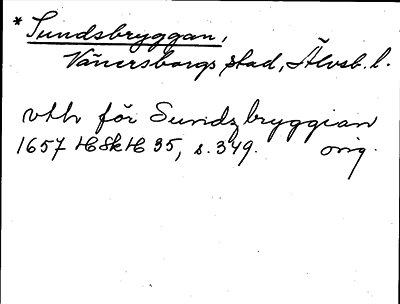 * Sundsbryggan,
Vänersborgs stad, Älvsb. l.
vth för Sundzbryggian
1657 HSkH 35, s. 349. orig.